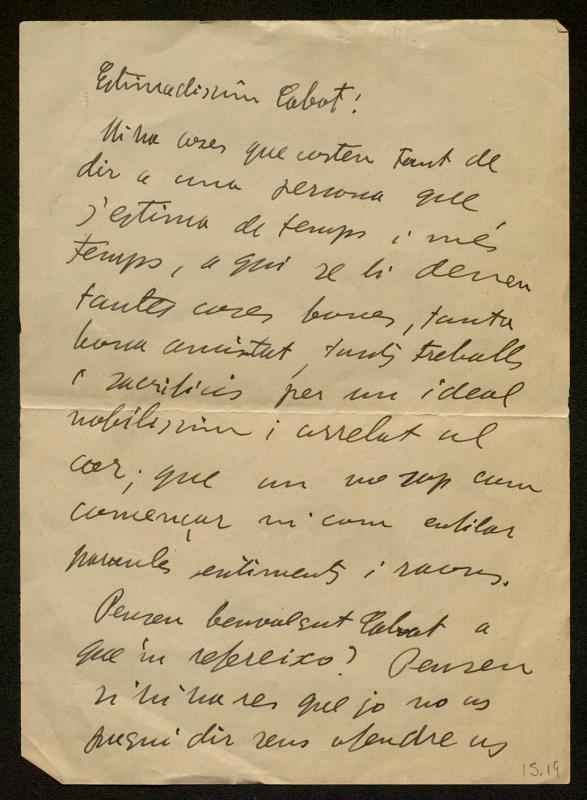 Estimadissim Cabot!
Hi ha coses que costen tant de
dir a una persona que
s'estima de temps i més
temps, a qui se li deuen
tantes coses bones, tanta
bona amistat, tants treballs
i sacrificis per un ideal
nobilissim i arrelat al
cor; que un no sap com
començar ni com enfilar
paraules sentiments i raons.
Pensen benvolgut Cabot a
que'm refereixo? Pensen
si hi ha res que jo no us
pugui dir sens ofendre us
15.19